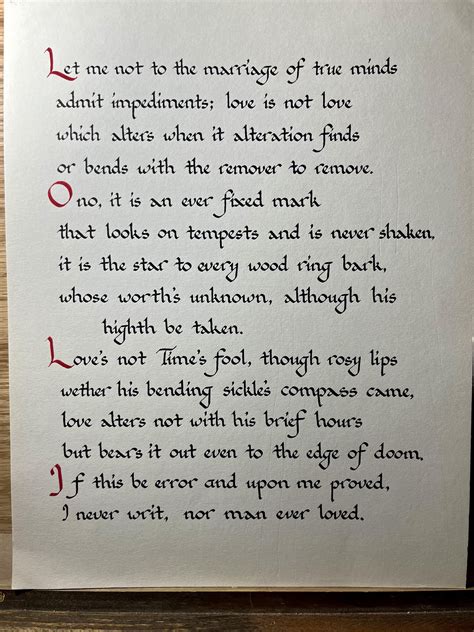 Let me not to the marriage of true minds
admit impediments; love is not love
which alters when it alteration finds
or bends with the remover to remove.
O no, it is an ever fixed mark
that looks on tempests and is never shaken,
it is the star to every wood ring bark,
whose worth's unknown, although his
highth be taken.
Love's not Time's fool, though rosy lips
wether his bending sickle's compass came,
love alters not with his brief hours
but bears it out even to the edge of doom.
If this be error and upon me proved,
I never writ, nor man ever loved.